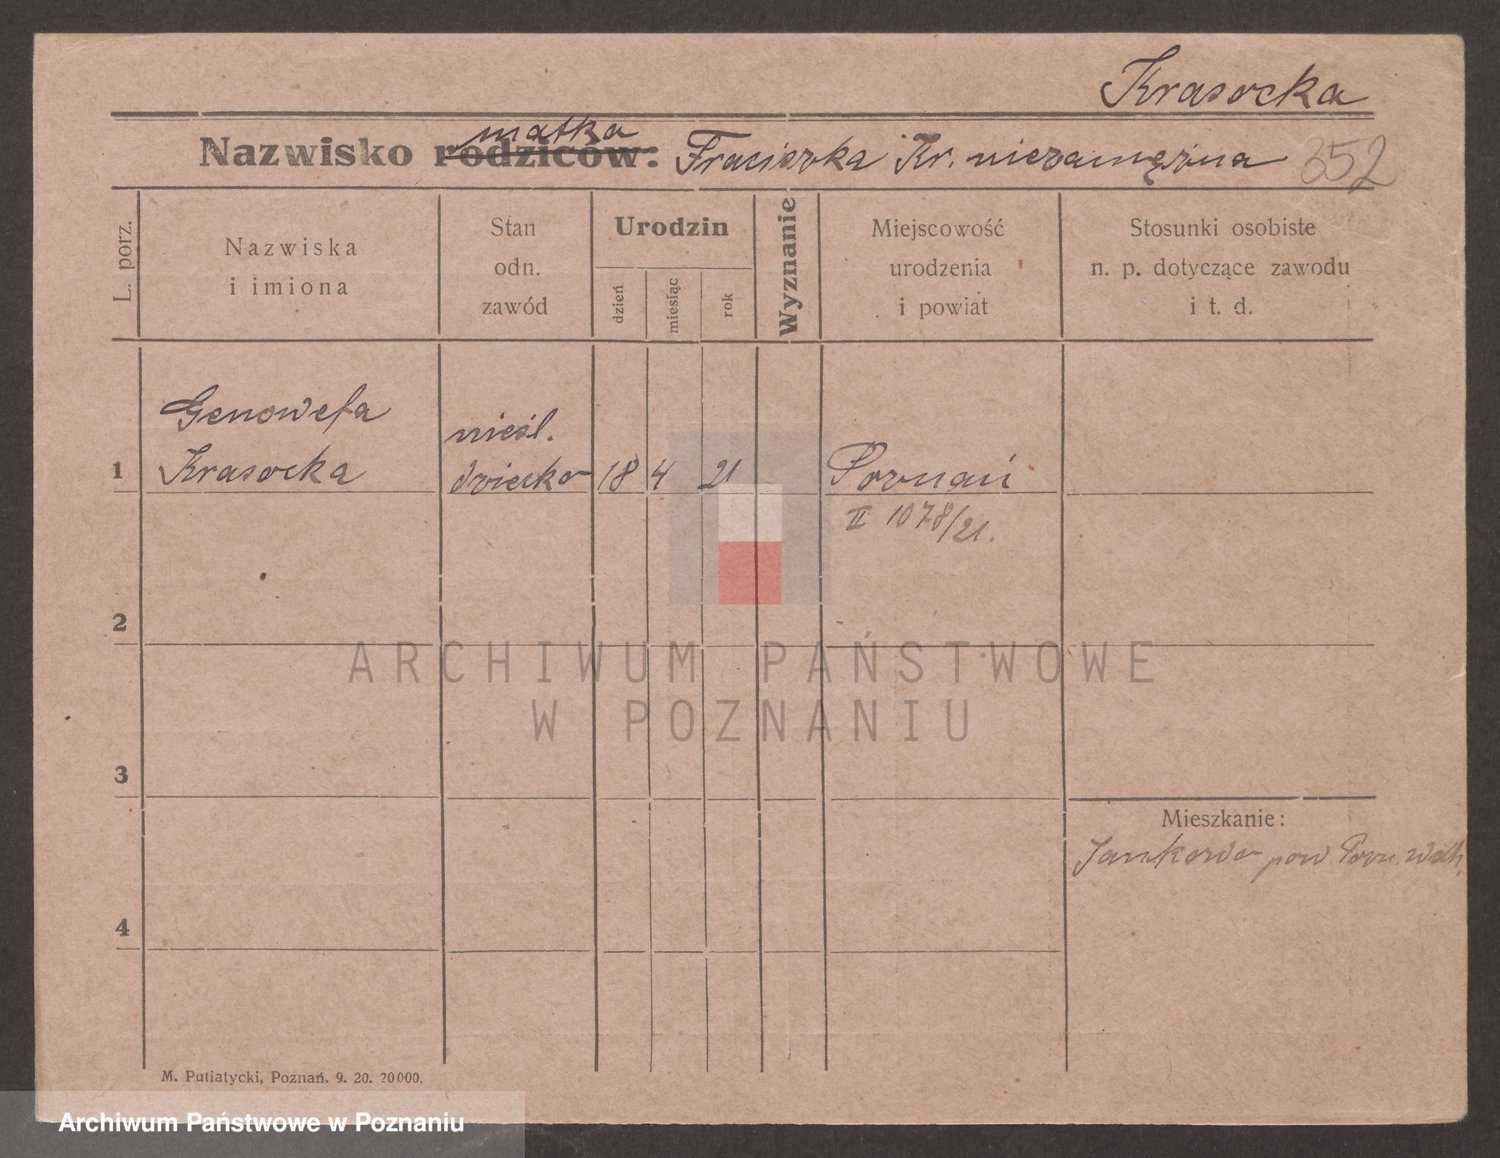 Krasocka
matka
Nazwisko rodziców: Franciszka Kr. niezamężna 352
L. porz.
Nazwiska
i imiona
Stan
odn.
zawód
Urodzin
dzień
miesiąc
rok
Wyznanie
Miejscowość
urodzenia
i powiat
Stosunki osobiste
n. p. dotyczące zawodu
i t. d.
Genowefa
nieśl.
1 Krasocka dziecko 18 4 21 Poznań
II 1078/21.
2
ARCHIWUM PAŃSTWOWE
W POZNANIU
3
Mieszkanie:
Jankowo pow Pozn. wsch.
4
M. Putiatycki, Poznań. 9. 20. 20000.
Archiwum Państwowe w Poznaniu